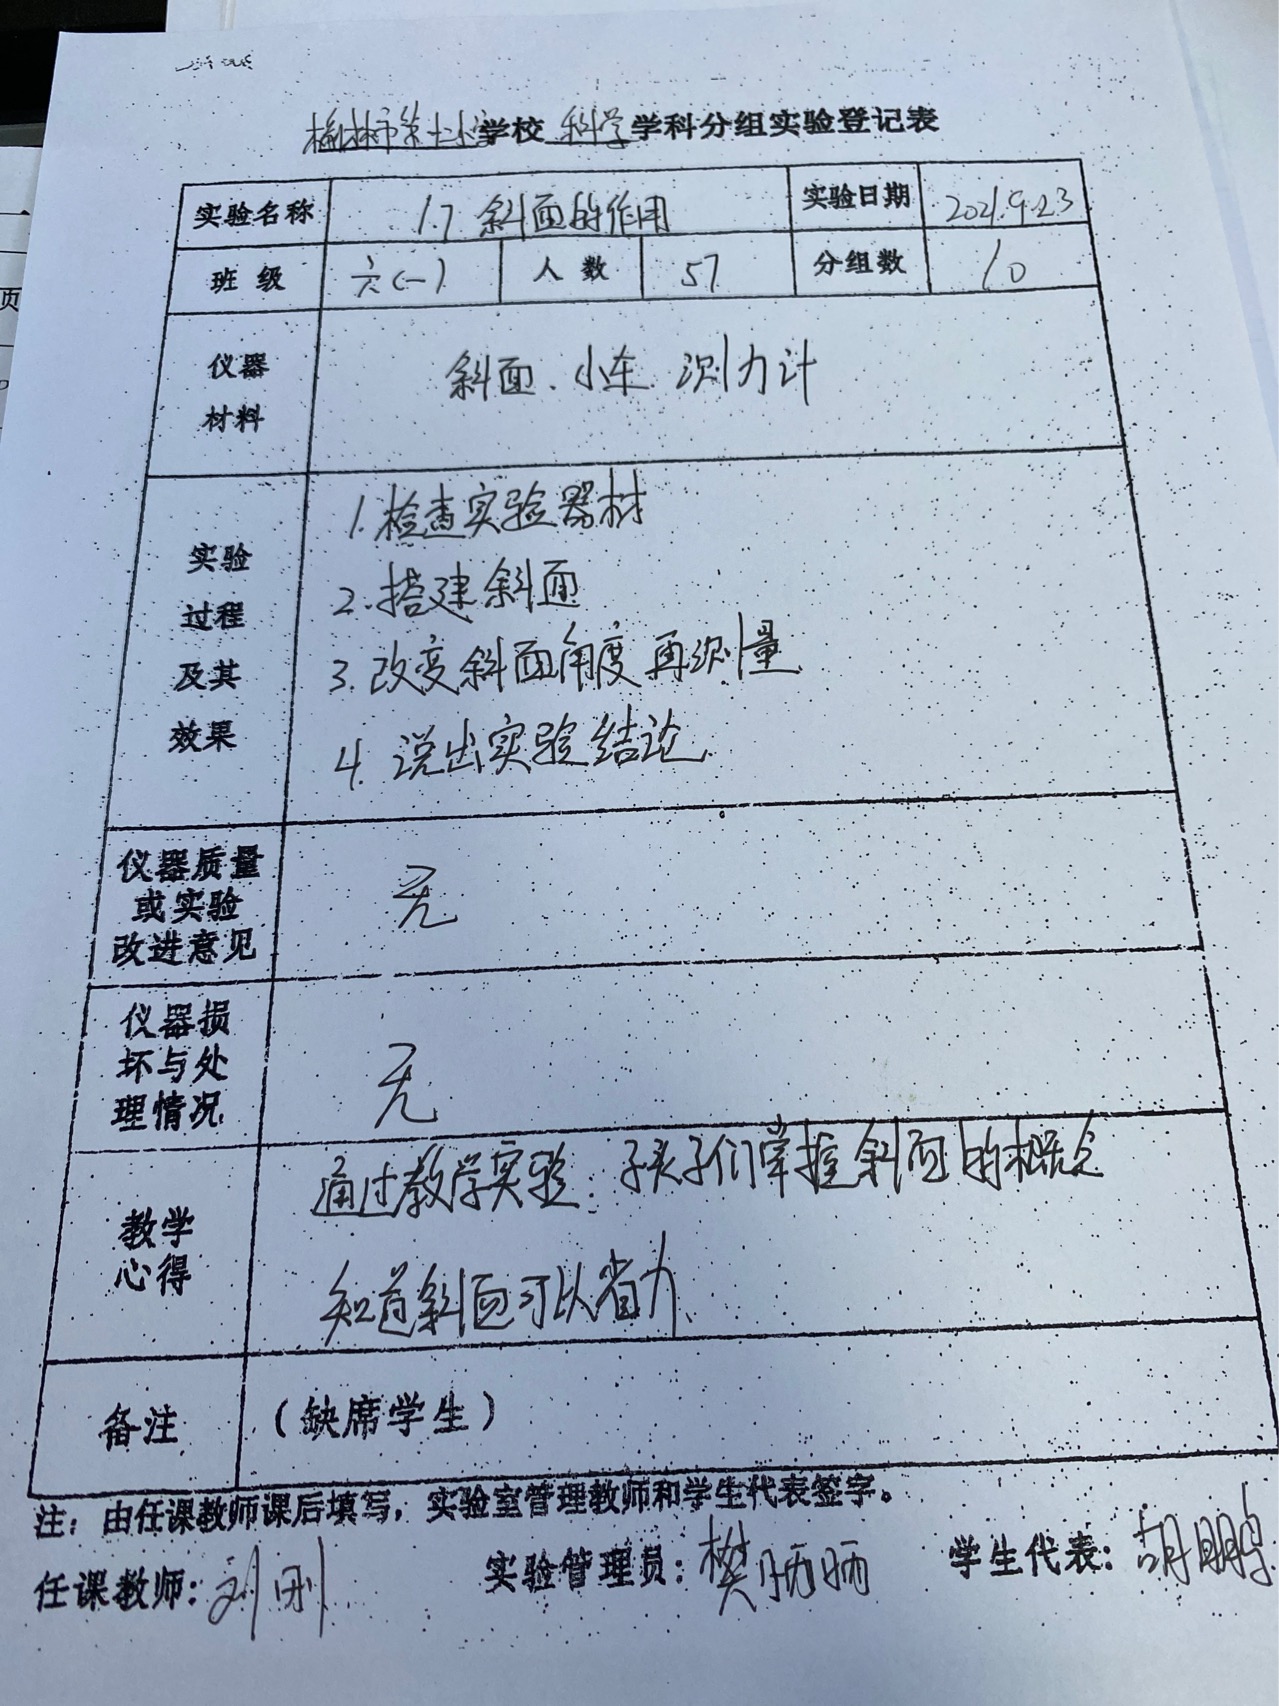 榆林市第十二小学校 科学 学科分组实验登记表
实验名称 1.7 斜面的作用 实验日期 2021.9.23
班 级 六(一) 人 数 57 分组数 10
仪器
材料
斜面、小车 测力计
实验
过程
及其
效果
1.检查实验器材
2.搭建斜面
3.改变斜面角度再测量
4.说出实验结论
仪器质量
或实验
改进意见
无
仪器损
坏与处
理情况
无
教学
心得
通过教学实验.孩子们掌握斜面的概念
知道斜面可以省力
备注 (缺席学生)
注：由任课教师课后填写，实验室管理教师和学生代表签字。
任课教师：刘刚 实验管理员：樊 学生代表：胡鹏
页